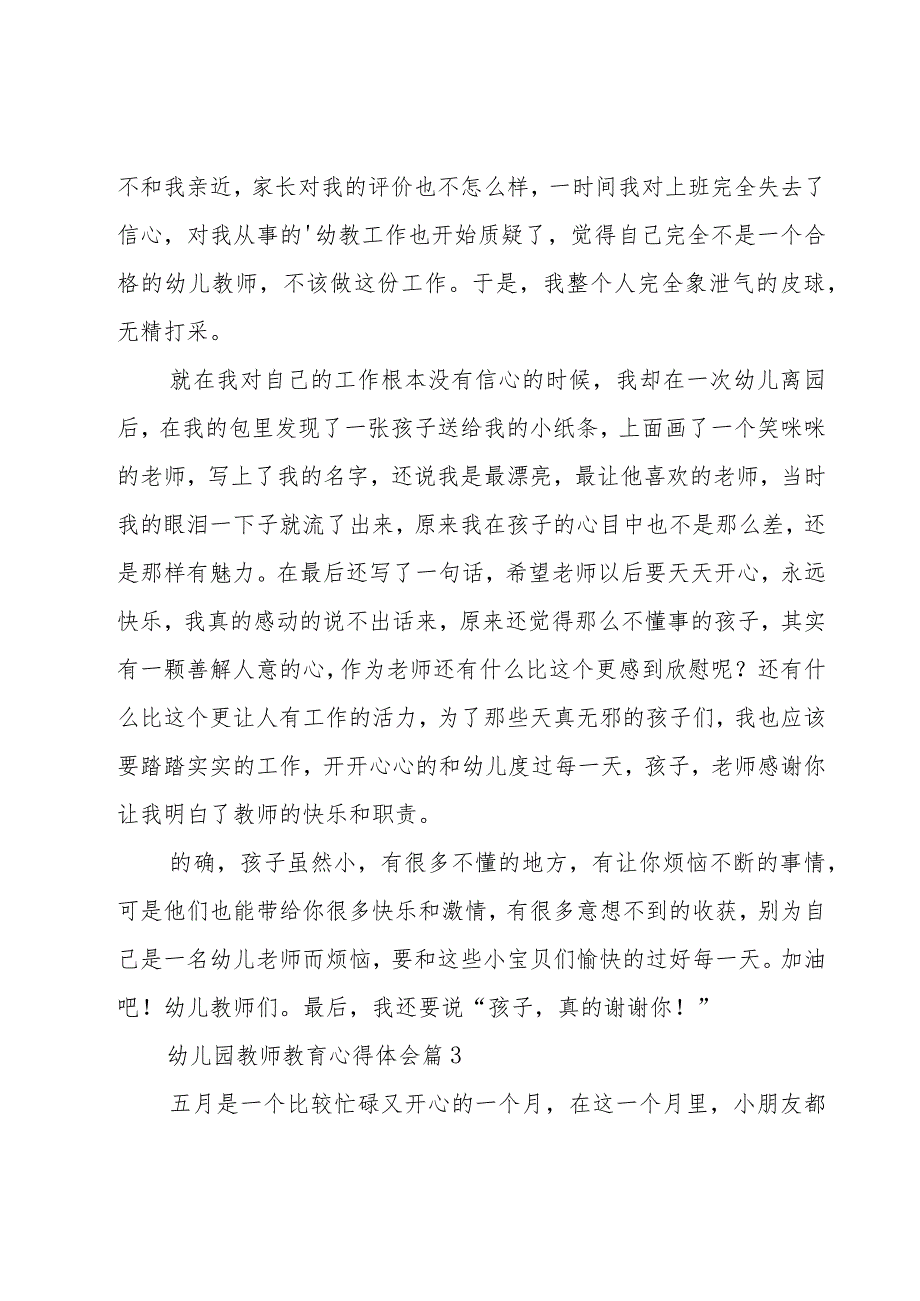 不和我亲近，家长对我的评价也不怎么样，一时间我对上班完全失去了
信心，对我从事的'幼教工作也开始质疑了，觉得自己完全不是一个合
格的幼儿教师，不该做这份工作。于是，我整个人完全象泄气的皮球，
无精打采。
就在我对自己的工作根本没有信心的时候，我却在一次幼儿离园
后，在我的包里发现了一张孩子送给我的小纸条，上面画了一个笑咪咪
的老师，写上了我的名字，还说我是最漂亮，最让他喜欢的老师，当时
我的眼泪一下子就流了出来，原来我在孩子的心目中也不是那么差，还
是那样有魅力。在最后还写了一句话，希望老师以后要天天开心，永远
快乐，我真的感动的说不出话来，原来还觉得那么不懂事的孩子，其实
有一颗善解人意的心，作为老师还有什么比这个更感到欣慰呢？还有什
么比这个更让人有工作的活力，为了那些天真无邪的孩子们，我也应该
要踏踏实实的工作，开开心心的和幼儿度过每一天，孩子，老师感谢你
让我明白了教师的快乐和职责。
的确，孩子虽然小，有很多不懂的地方，有让你烦恼不断的事情，
可是他们也能带给你很多快乐和激情，有很多意想不到的收获，别为自
己是一名幼儿老师而烦恼，要和这些小宝贝们愉快的过好每一天。加油
吧！幼儿教师们。最后，我还要说“孩子，真的谢谢你！”
幼儿园教师教育心得体会篇3
五月是一个比较忙碌又开心的一个月，在这一个月里，小朋友都